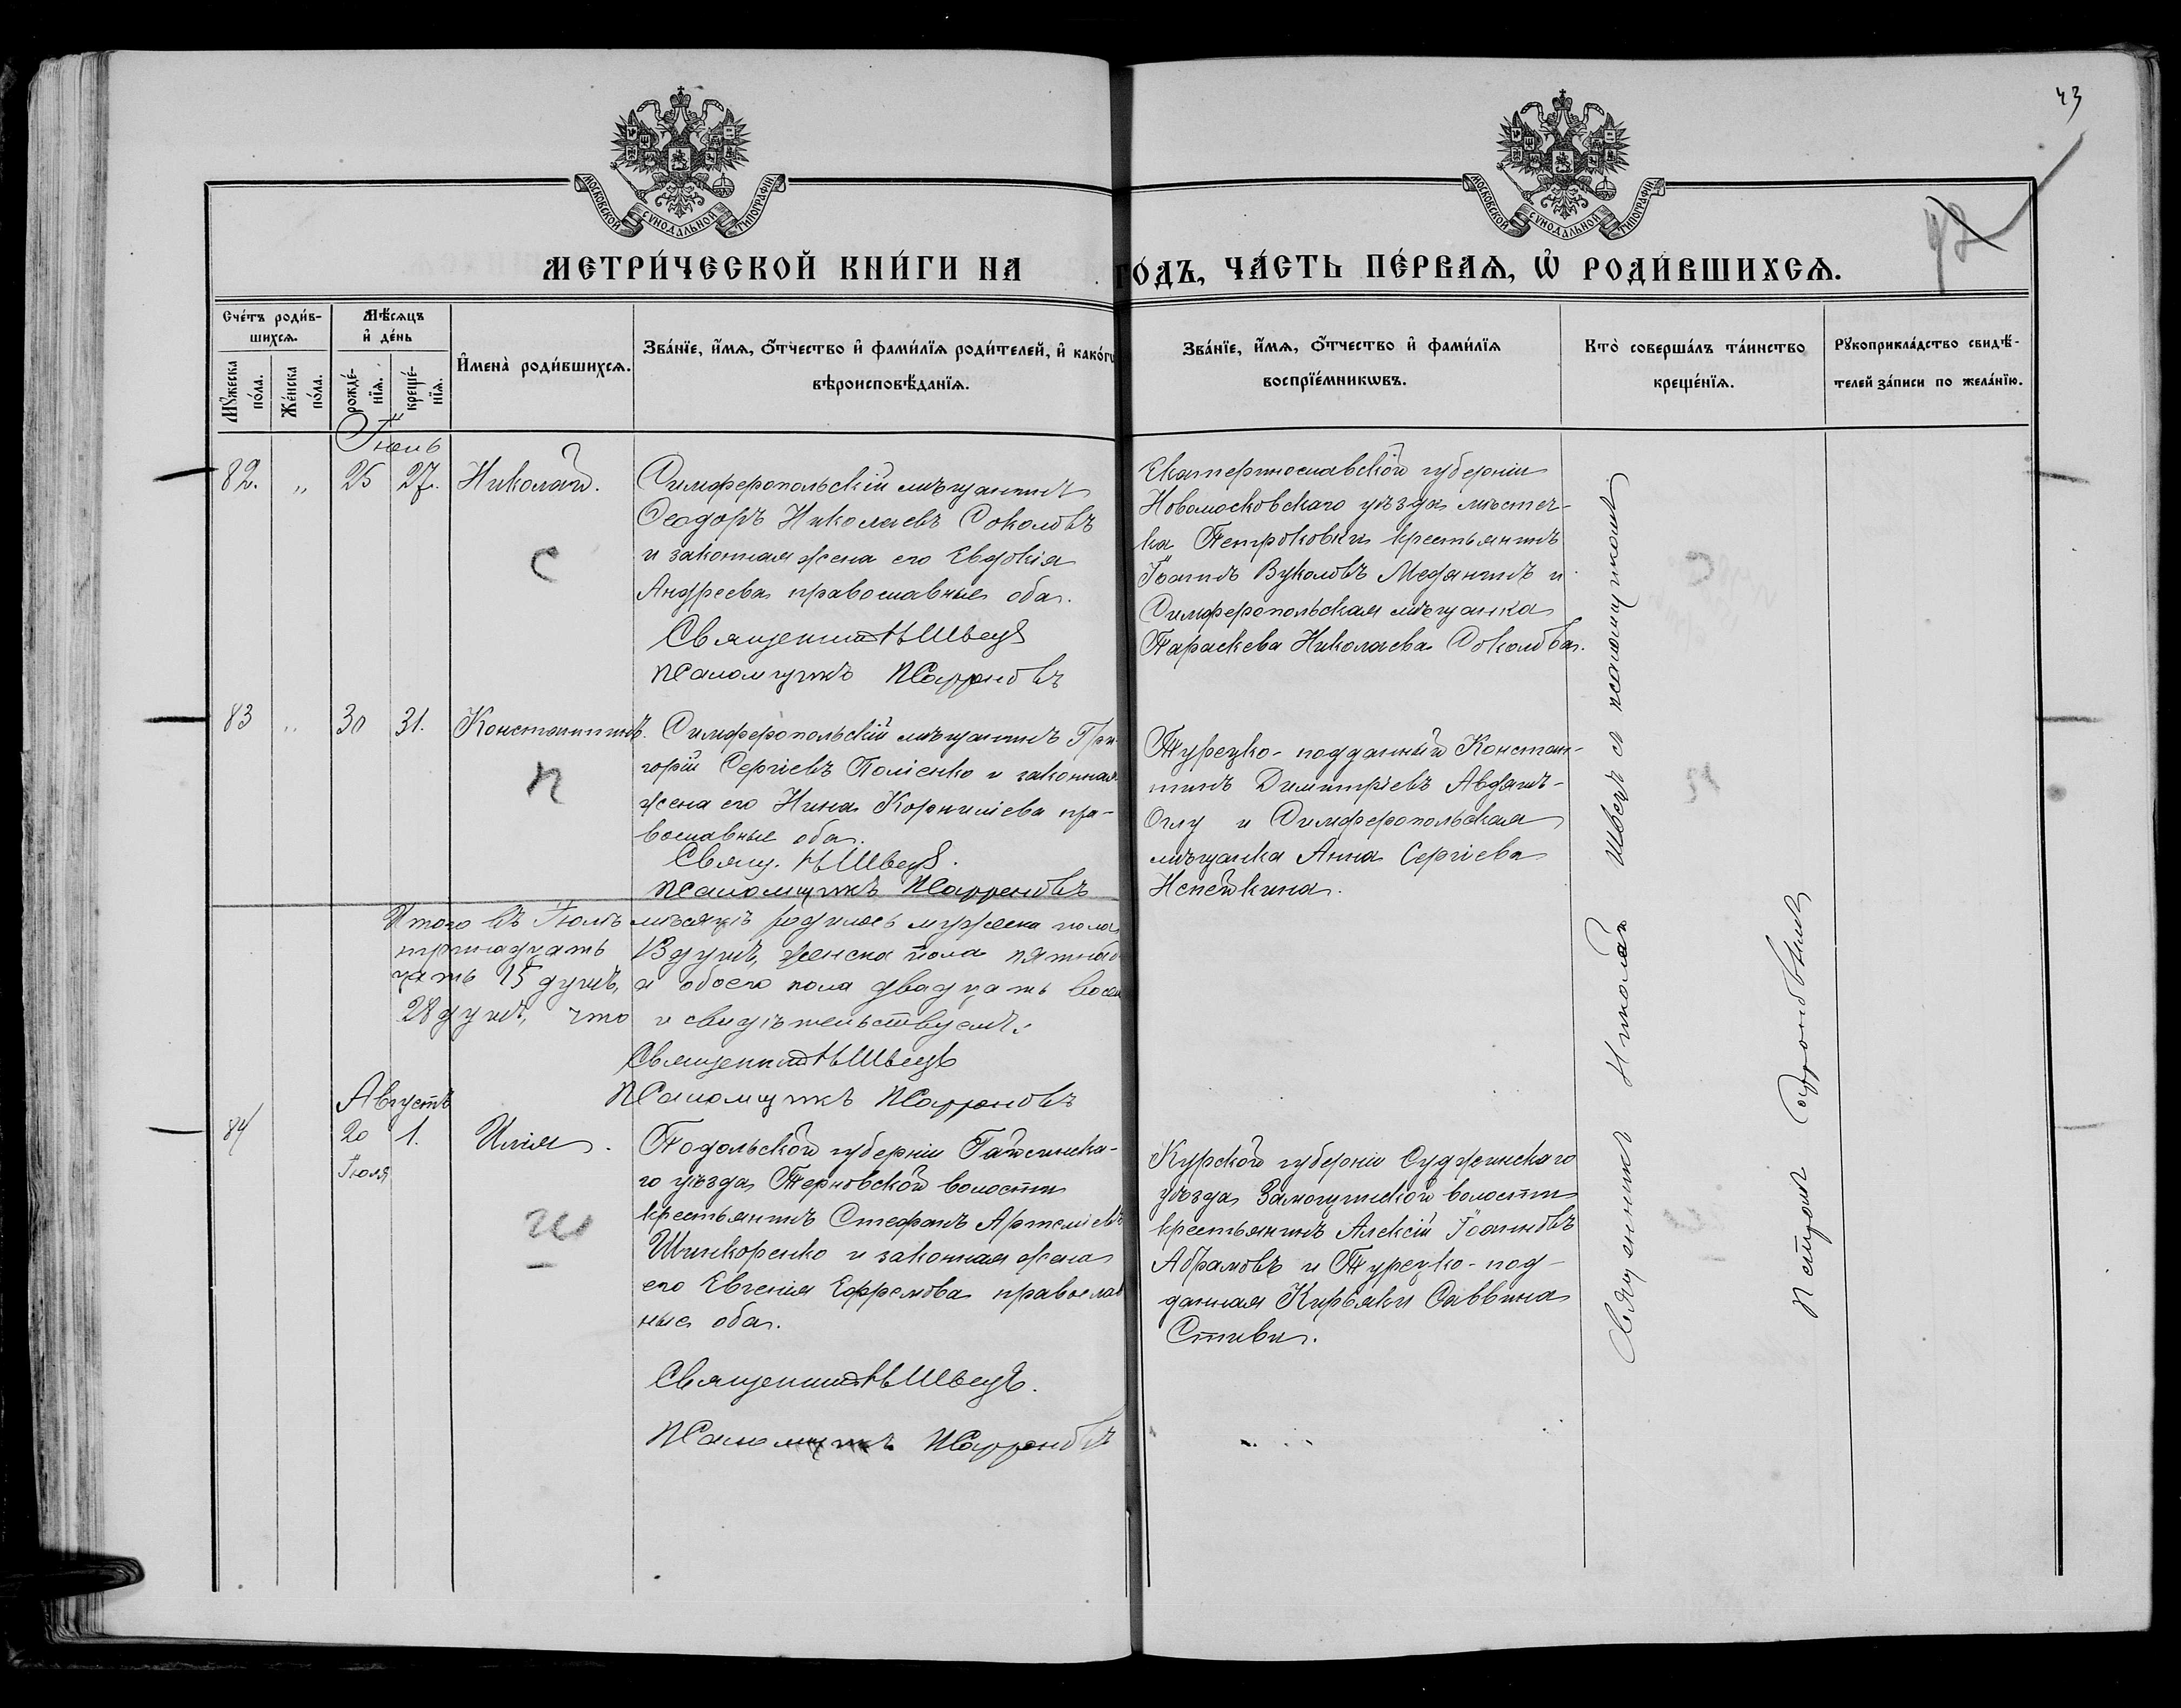 43
42
МОСКОВСКОЙ СѴНОДАЛЬНОЙ ТИПОГРАФІИ
МОСКОВСКОЙ СѴНОДАЛЬНОЙ ТИПОГРАФІИ
МЕТРИ́ЧЕСКОЙ КНИ́ГИ НА ГО́ДЪ, ЧА́СТЬ ПЕ́РВАѦ, Ѡ҆ РОДИ́ВШИХСѦ.
Сче́тъ роди́в-
шихсѧ.
Мꙋ́жеска по́ла.
Же́нска по́ла.
Мѣ́сѧцъ
и҆ де́нь
рожде́-
нїѧ.
креще́-
нїѧ.
И҆мена̀ роди́вшихсѧ.
Зва́нїе, и҆́мѧ, ѻ҆́тчество и҆ фами́лїѧ роди́телей, и҆ како́гѡ
вѣроисповѣ́данїѧ.
Зва́нїе, и҆́мѧ, ѻ҆́тчество и҆ фами́лїѧ
воспрїе́мникѡвъ.
Кто̀ соверша́лъ та́инство
креще́нїѧ.
Рꙋкоприкла́дство свидѣ́-
телей за́писи по жела́нїю.
Іюль
82. „ 25 27. Николай.
С
Симферопольскій мѣщанинъ
Ѳеодоръ Николаевъ Соколовъ
и законная жена его Евдокія
Андреева православные оба.
Священникъ Н Швецъ
Псаломщикъ ПСафроновъ
Екатеринославской губерніи
Новомосковскаго уѣзда мѣстеч-
ка Петроковки крестьянинъ
Іоаннъ Вуколовъ Медянинъ и
Симферопольская мѣщанка
Параскева Николаева Соколова.
83 „ 30 31. Константинъ.
П
Симферопольскій мѣщанинъ Гри-
горій Сергіевъ Поліенко и законная
жена его Нина Корниліева пра-
вославные оба.
Свящ. Н Швецъ.
Псаломщикъ ПСафроновъ
Турецко-подданный Констан-
тинъ Димитріевъ Авдашъ-
Оглу и Симферопольская
мѣщанка Анна Сергіева
Испейкина.
Итого въ Іюлѣ мѣсяцѣ родилось мужеска пола
тринадцать 13 душъ, женска пола пятнад
цать 15 душъ, а обоего пола двадцать восем
28 душъ, что и свидѣтельствуемъ:
Священникъ Н Швецъ
Псаломщикъ ПСафроновъ
Августъ
84 20 1. Илія.
Іюля
Ш
Подольской губерніи Гайсинска-
го уѣзда Терновской волости
крестьянинъ Стефанъ Артеміевъ
Шинкоренко и законная жена
его Евгенія Ефремова православ
ные оба.
Священникъ Н Швецъ.
Псаломщикъ ПСафроновъ
Курской губерніи Суджинскаго
уѣзда Замостянской волости
крестьянинъ Алексій Іоанновъ
Абрамовъ и Турецко-под-
данная Кирьяки Саввина
Стиви.
Священникъ Николай Швецъ съ псаломщикомъ
Петромъ Сафроновымъ